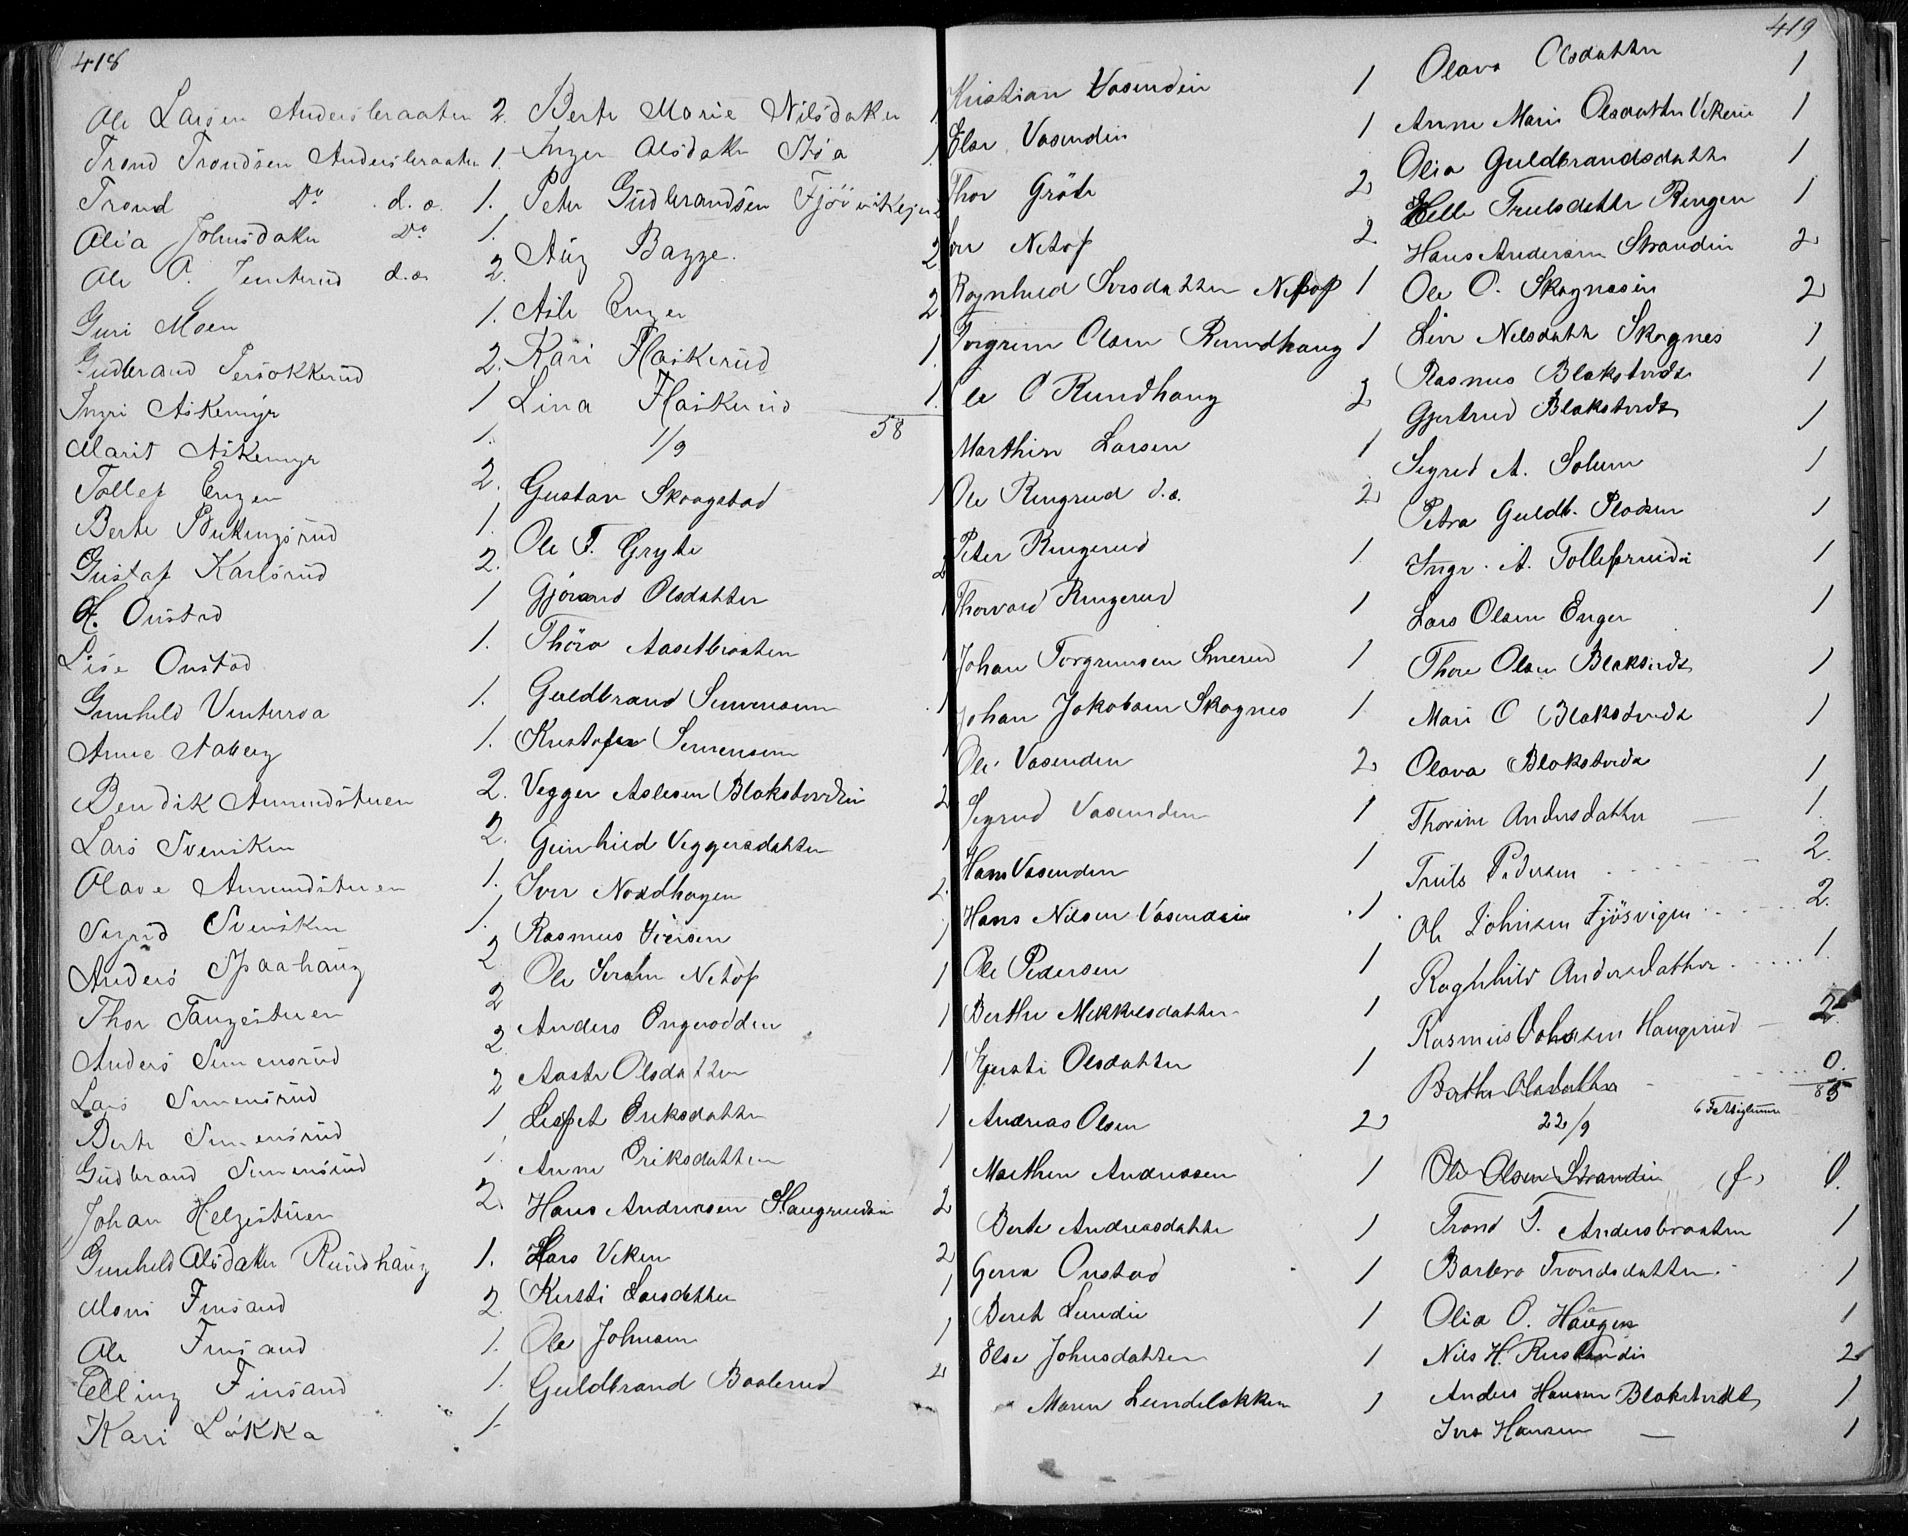 418
Ole Larsen Andersbraaten 2.
Trond Trondsen Andersbraaten 1.
Trond Do d. æ. 1.
Olia Johnsdatter Do 1.
Ole P. d. æ. 2.
Guri Moen 1.
Gudbrand Persokkerud 2.
Ingri Askemyr 1
Marit Askemyr 1.
Tollef Enger 2.
Berte Bukingsrud 1.
Gustaf Karlsrud 2.
H. Onstad 1
Lise Onstad 1.
Gunhild Vinterroa 1.
Anne Aaberg 1.
Bendik Amundstuen 2.
Lars Svensken 2.
Olave Amundstuen 1.
Sigrid Svensken 1.
Anders Spaahaug 2
Thor Tangestuen 2
Anders Simensrud 2
Lars Simensrud 2
Berte Simensrud 1
Gudbrand Simensrud 1.
Johan Helgestuen 2.
Gunhild Olsdatter Rundhaug 1.
Mons Finsand 2.
Ole Finsand 1.
Elling Finsand 1.
Kari Løkka 1
Berte Marie Nilsdatter 1.
Inger Olsdatter 1
Peter Gudbrandsen 2
Aug Bagge. 2
Asle Enger 2
Kari Flaskerud 1
Lina Flaskerud 1.
58
1/9
Gustav Skragstad 1
Ole T. Gryte 2
Gjørand Olsdatter 1
Thöra Aasetbraaten 1
Guldbrand Simensen 1
Kristofer Simensen 1
Vegger Aslesen Blakstvedt 2
Gunhild Veggersdatter 1
Iver Nordhagen 2
Rasmus Iversen 1
Ole Iversen Netof 1
Anders Ongerodden 1
Aaste Olsdatter 1
Lispet Eriksdatter 1
Anne Eriksdatter 1
Hans Andreasen Haugerudsie 2
Lars Veken 2
Kirsti Larsdatter 1
Ole Johnsen 1
Guldbrand Baalerud 2
419
Kristian Vasenden 1
Else Vasenden 1
Thor Gröte 2
Iver Netof 2
Ragnhild Iversdatter Netof 1
Torgrim Olsen Rundhaug 1
Ole O Rundhaug 2
Marthin Larsen 1
Ole Ringerud d. æ. 2
Peter Ringerud 1.
Thorvald Ringerud 1
Johan Torgrimsen Smerud 1
Johan Jakobsen Skagnes 1
Ole Vasenden 2
Sigrid Vasenden 1
Hans Vasenden 1
Hans Nilsen Vasenden 1
Ole Pedersen 1
Berthe Mikkelsdatter 1
Kjersti Olsdatter 1
Andreas Olsen 2
Marthin Andreassen 1
Berte Andreasdatter 1
Gerra Onstad 1
Berit Lundie 1
Else Johnsdatter 1
Maren Lundeløkken 1
Olava Olsdatter 1
Anne Marie Olsdatter Vekerie 1
Olia Guldbrandsdatter 1
Helle Trulsdatter Ringen 1
Hans Andersen Strandin 2
Ole O. Skagnesin 2
Live Nilsdatter Skagnes 1
Rasmus Blakstvedt 1
Gjertrud Blakstvedt 1
Sigrid A. Solum 1
Petra Guldb. Pladsen 1
Ingr. A. Tollefsrude 1
Lars Olsen Enger 1
Thore Olsen Blakstvedt 1
Mari O Blakstvedt 1
Olava Blakstvedt 1
Thorine Andersdatter 1.
Truls Pedersen 2.
Ole Johnsen Fjösvigen 2.
Raghild Andersdatter 1.
Rasmus Johnsen Haugerud 2.
Berthe Olsdatter 0.
85
22/9
Ole Olsen Strandin (f) 0.
Trond T. Andersbraaten 1
Barbro Trondsdatter 1
Olia O. Haugen 1
Nils H. Ruslandie 2
Anders Hansen Blakstvedt 1
Iver Hansen — 1